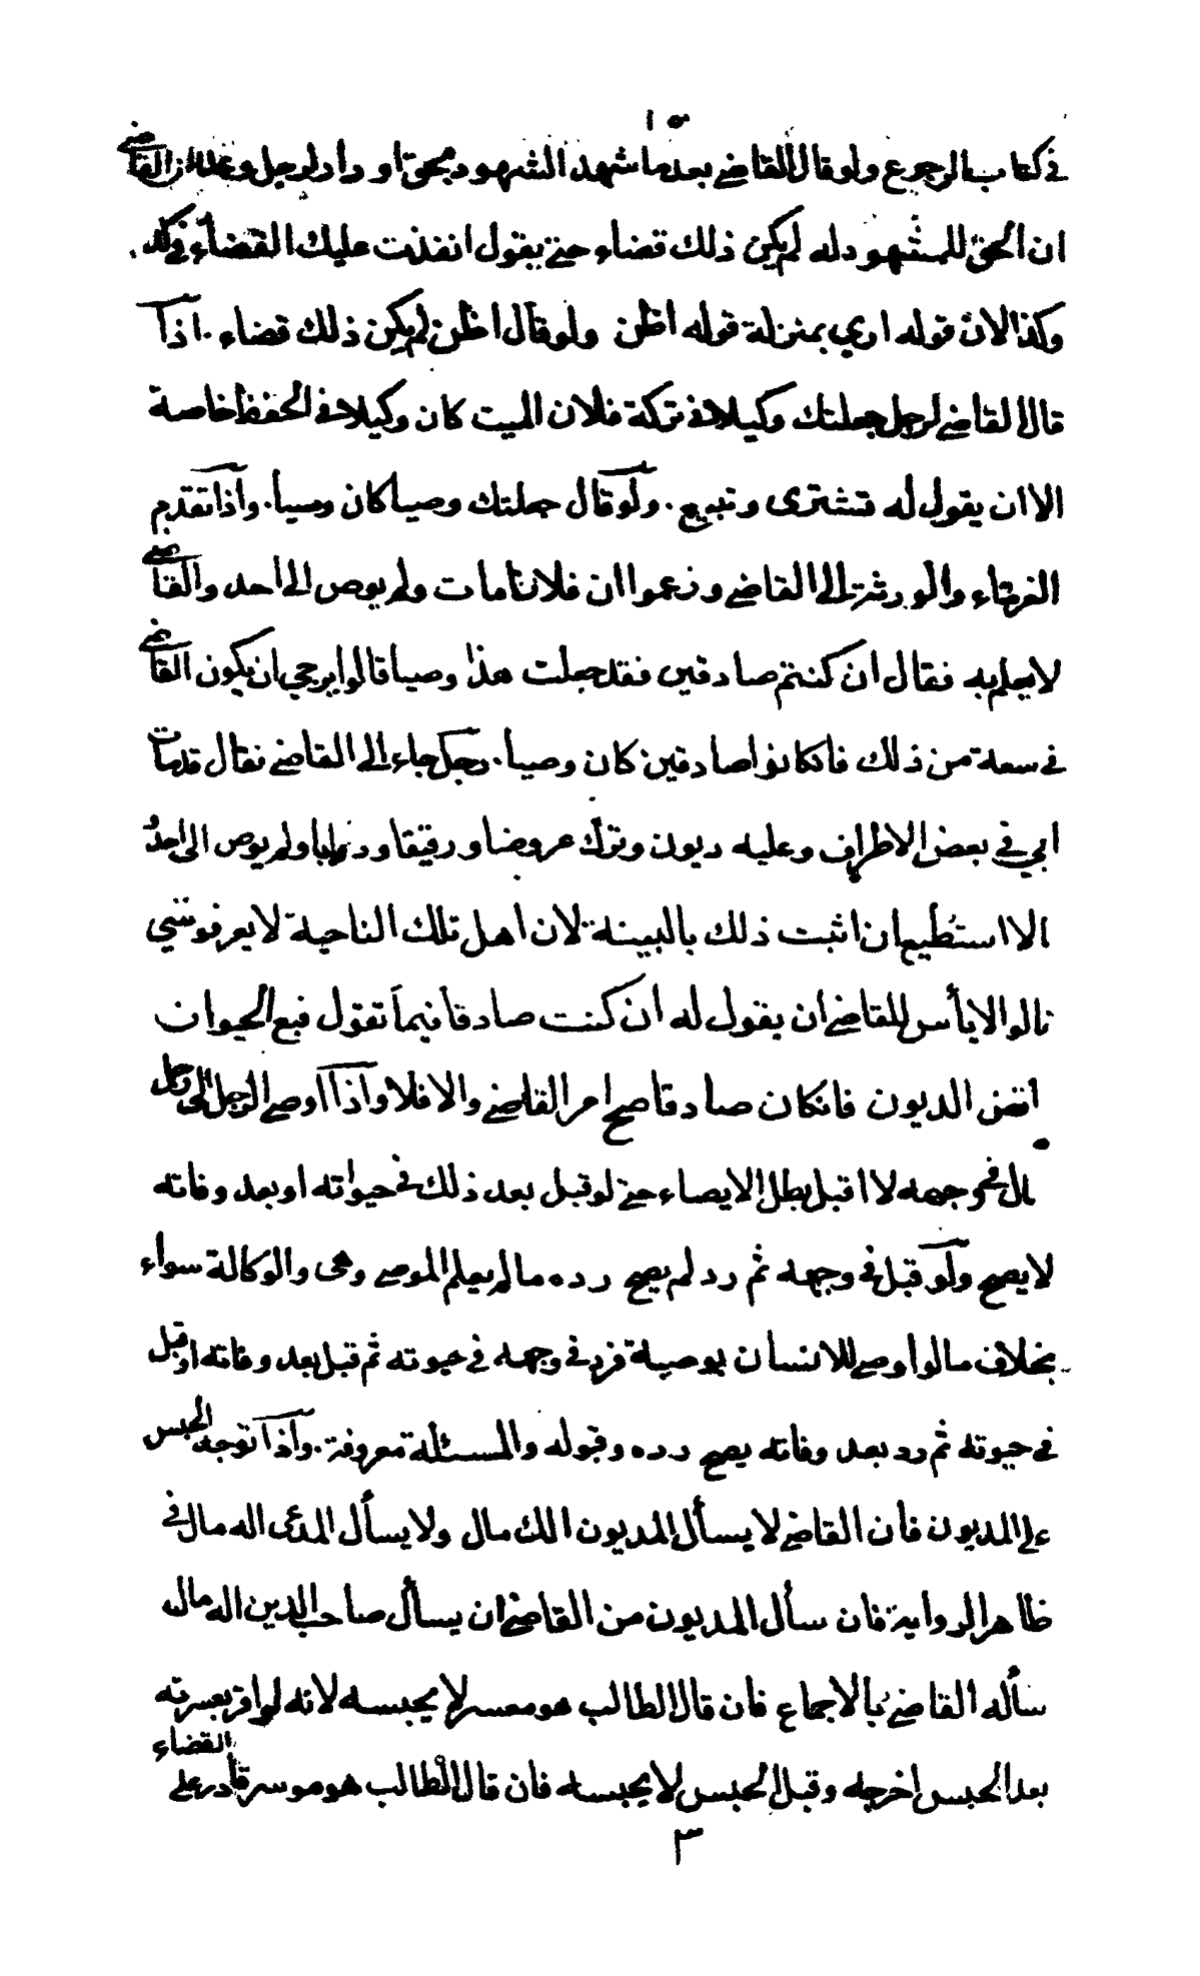 ١٥
في كتاب الرجوع ولو قال القاضي بعد ما شهد الشهود بحق او دار لرجل وعدلا ان القاضي
ان الحق للمشهود له لم يكن ذلك قضاء حتى يقول انفذت عليك القضاء في كذ
وكذا لان قوله اري بمنزلة قوله اظن ولو قال اظن لم يكن ذلك قضاء . اذا
قال القاضي لرجل جعلتك وكيلا في تركة فلان الميت كان وكيلا في الحفظ خاصة
الا ان يقول له تشترى وتبيع . ولو قال جعلتك وصيا كان وصيا . واذا تقدم
الغرماء والورثة الى القاضي وزعموا ان فلانا مات ولم يوص الى احد والقاضي
لا يعلم به فقال ان كنتم صادقين فقد جعلت هذا وصيا قالوا يرجي ان يكون القاضي
في سعة من ذلك فان كانوا صادقين كان وصيا . رجل جاء الى القاضي فقال قد مات
ابي في بعض الاطراف وعليه ديون وترك عروضا ورقيقا ودوابا ولم يوص الى احد
الا استطيع ان اثبت ذلك بالبينة لان اهل تلك الناحية لا يعرفوني
قالوا لا بأس للقاضي ان يقول له ان كنت صادقا فيما تقول فبع الحيوان
اقض الديون فان كان صادقا صح امر القاضي والا فلا واذا اوصى الرجل الى رجل
قال في وجهه لا اقبل بطل الايصاء حتى لو قبل بعد ذلك في حيواته او بعد وفاته
لا يصح ولو قبل في وجهه ثم رد لم يصح رده ما لم يعلم الموصي وهى والوكالة سواء
بخلاف ما لو اوصى للانسان بوصية فرد في وجهه في حيوته ثم قبل بعد وفاته او قبل
في حيوته ثم رد بعد وفاته يصح رده وقبوله والمسئلة معروفة . واذا توجه الحبس
على المديون فان القاضي لا يسأل المديون الك مال ولا يسأل المدعى اله مال في
ظاهر الرواية فان سأل المديون من القاضي ان يسأل صاحب الدين اله مال
سأله القاضي بالاجماع فان قال الطالب هو معسر لا يحبسه لانه لو اقر بعسرته
بعد الحبس اخرجه وقبل الحبس لا يحبسه فان قال الطالب هو موسر قادر على القضاء
٣